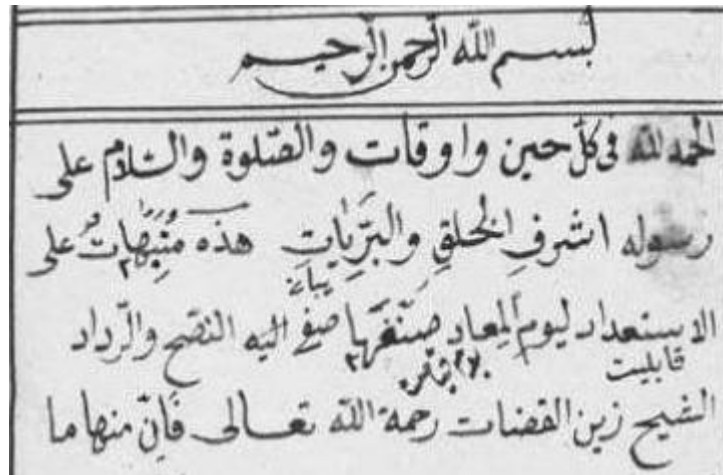 بسم الله الرحمن الرحيم
الحمد لله فی کلّ حین و اوقات والصّلوة والسّلام علی
رسوله اشرفِ الخلقِ والبرّیاتِ هذه مُنَبِّهَاتٌ علی
الاستعداد لیومِ المعاد صنّفها الیه النصح والرّداد
قابلیت
الشیخ زین القضات رحمة الله تعالی فَاِنّ منها ما